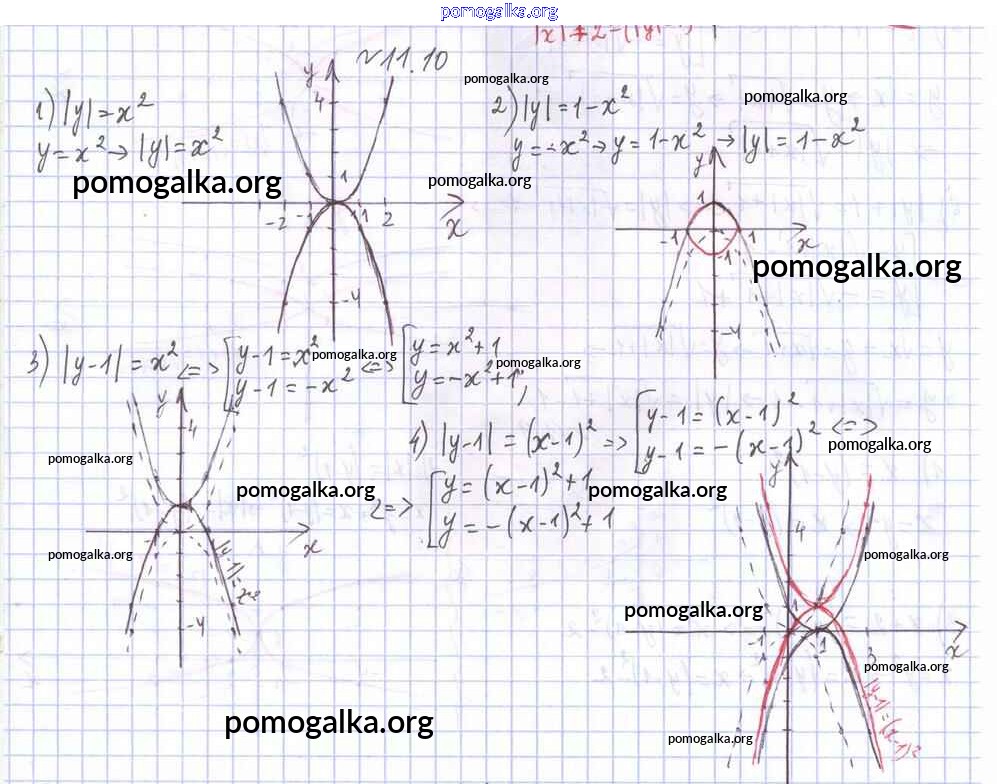 pomogalka.org
№11.10
pomogalka.org
pomogalka.org
1) |y|=x²
y=x² → |y|=x²
pomogalka.org
y
4
1
-2 -1 1 2
x
-4
2) |y|=1-x²
y=-x² → y=1-x² → |y|=1-x²
pomogalka.org
y
1
-1 1
x
-1
pomogalka.org
-4
3) |y-1|=x² <=> [ y-1=x² <=> [ y=x²+1
y-1=-x² y=-x²+1;
pomogalka.org
pomogalka.org
y
4
x
-4
pomogalka.org
pomogalka.org
4) |y-1|=(x-1)² => [ y-1=(x-1)²
y-1=-(x-1)² <=>
pomogalka.org
<=> [ y=(x-1)²+1
y=-(x-1)²+1
pomogalka.org
pomogalka.org
y
4
pomogalka.org
pomogalka.org
1
-1 1 3
x
pomogalka.org
|y-1|=(x-1)²
pomogalka.org
pomogalka.org